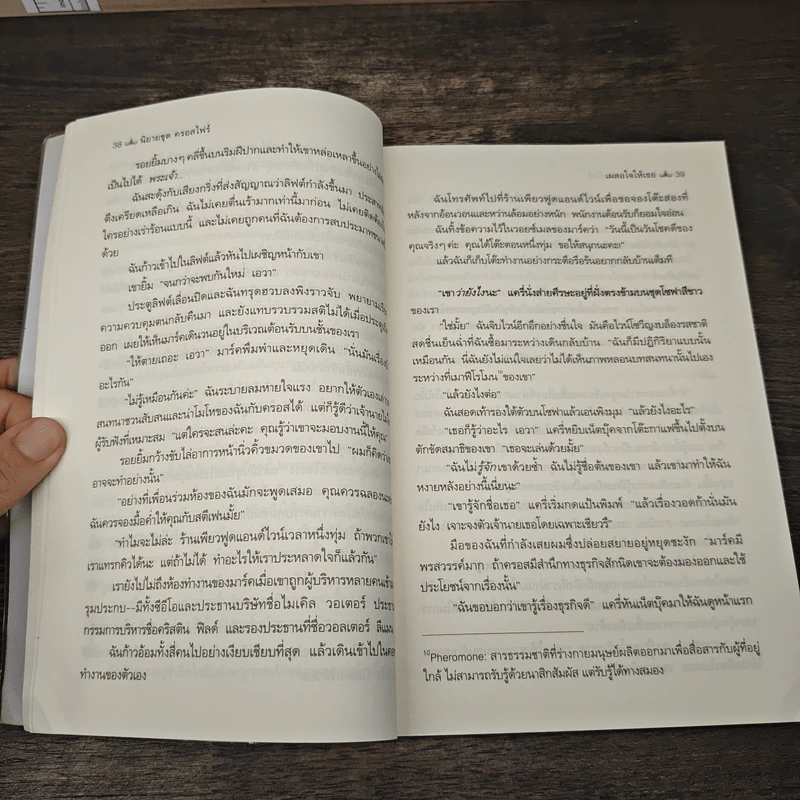 38 นิยายชุด ครอสไฟร์
รอยยิ้มบางๆ คลี่ขึ้นบนริมฝีปากและทำให้เขาหล่อเหลาขึ้นอย่าง
เป็นไปได้ พระเจ้า...
ฉันสะดุ้งกับเสียงกริ่งที่ส่งสัญญาณว่าลิฟต์กำลังขึ้นมา
ตึงเครียดเหลือเกิน ฉันไม่เคยตื่นเร้ามากเท่านี้มาก่อน ไม่เคยติด
ใครอย่างเร่าร้อนแบบนี้ และไม่เคยถูกคนที่ฉันต้องการสบประมาท
ด้วย
ฉันก้าวเข้าไปในลิฟต์แล้วหันไปเผชิญหน้ากับเขา
เขายิ้ม "จนกว่าจะพบกันใหม่ เอวา"
ประตูลิฟต์เลื่อนปิดและฉันทรุดฮวบลงพิงราวจับ พยายาม
ความควบคุมตนกลับคืนมา และยังแทบรวบรวมสติไม่ได้เมื่อประตู
ออก เผยให้เห็นมาร์คเดินวนอยู่ในบริเวณต้อนรับบนชั้นของเรา
"ให้ตายเถอะ เอวา" มาร์คพึมพำและหยุดเดิน "นั่นมันเรื่อง
อะไรกัน"
"ไม่รู้เหมือนกันค่ะ" ฉันระบายลมหายใจแรง อยากให้ตัวเอง
สนทนาชวนสับสนและน่าโมโหของฉันกับครอสได้ แต่ก็รู้ดีว่าเจ้านาย
ผู้รับฟังที่เหมาะสม "แต่ใครจะสนล่ะคะ คุณรู้ว่าเขาจะมอบงานนี้ให้คุณ"
รอยยิ้มกว้างขับไล่อาการหน้านิ่วคิ้วขมวดของเขาไป "ผมก็คิดว่า
อาจจะทำอย่างนั้น"
"อย่างที่เพื่อนร่วมห้องของฉันมักจะพูดเสมอ คุณควรฉลอง
ฉันควรจองมื้อค่ำให้คุณกับสตีเฟนมั้ย"
"ทำไมจะไม่ล่ะ ร้านเพียวฟูดแอนด์ไวน์เวลาหนึ่งทุ่ม ถ้าพวกเขา
เราแทรกคิวได้นะ แต่ถ้าไม่ได้ ทำอะไรให้เราประหลาดใจก็แล้วกัน"
เรายังไปไม่ถึงห้องทำงานของมาร์คเมื่อเขาถูกผู้บริหารหลายคน
รุมประกบ--มีทั้งซีอีโอและประธานบริษัทชื่อไมเคิล วอเตอร์
กรรมการบริหารชื่อคริสติน ฟิลด์ และรองประธานที่ชื่อวอลเตอร์ ลีแมน
ฉันก้าวอ้อมทั้งสี่คนไปอย่างเงียบเชียบที่สุด แล้วเดินเข้าไปใน
ทำงานของตัวเอง
เผลอใจให้เธอ 39
ฉันโทรศัพท์ไปที่ร้านเพียวฟูดแอนด์ไวน์เพื่อขอจองโต๊ะสองที่
หลังจากอ้อนวอนและหว่านล้อมอย่างหนัก พนักงานต้อนรับก็ยอมใจอ่อน
ฉันทิ้งข้อความไว้ในวอยซ์เมลของมาร์คว่า "วันนี้เป็นวันโชคดีของ
คุณจริงๆ ค่ะ คุณได้โต๊ะตอนหนึ่งทุ่ม ขอให้สนุกนะคะ!"
แล้วฉันก็เก็บโต๊ะทำงานอย่างกระตือรือร้นอยากกลับบ้านเต็มที
"เขาว่ายังไงนะ" แครี่นั่งส่ายศีรษะอยู่ที่ฝั่งตรงข้ามบนชุดโซฟาสีขาว
ของเรา
"ใช่มั้ย" ฉันจิบไวน์อีกอึกอย่างชื่นใจ มันคือไวน์โซวีญงบล็องรสชาติ
สดชื่นเย็นฉ่ำที่ฉันซื้อมาระหว่างเดินกลับบ้าน "ฉันก็มีปฏิกิริยาแบบนั้น
เหมือนกัน นี่ฉันยังไม่แน่ใจเลยว่าไม่ได้เห็นภาพหลอนบทสนทนานั้นไปเอง
ระหว่างที่เมาฟีโรโมน¹⁰ของเขา"
"แล้วยังไงต่อ"
ฉันสอดเท้ารองใต้ตัวบนโซฟาแล้วเอนพิงมุม "แล้วยังไงอะไร"
"เธอก็รู้ว่าอะไร เอวา" แครี่หยิบเน็ตบุ๊คจากโต๊ะกาแฟขึ้นไปตั้งบน
ตักขัดสมาธิของเขา "เธอจะเล่นด้วยมั้ย"
"ฉันไม่รู้จักเขาด้วยซ้ำ ฉันไม่รู้ชื่อต้นของเขา แล้วเขามาทำให้ฉัน
หงายหลังอย่างนี้เนี่ยนะ"
"เขารู้จักชื่อเธอ" แครี่เริ่มกดแป้นพิมพ์ "แล้วเรื่องวอดก้านั่นมัน
ยังไง เจาะจงตัวเจ้านายเธอโดยเฉพาะเชียวรึ"
มือของฉันที่กำลังเสยผมซึ่งปล่อยสยายอยู่หยุดชะงัก "มาร์คมี
พรสวรรค์มาก ถ้าครอสมีสำนึกทางธุรกิจสักนิดเขาจะต้องมองออกและใช้
ประโยชน์จากเรื่องนั้น"
"ฉันขอบอกว่าเขารู้เรื่องธุรกิจดี" แครี่หันเน็ตบุ๊คมาให้ฉันดูหน้าแรก
¹⁰Pheromone: สารธรรมชาติที่ร่างกายมนุษย์ผลิตออกมาเพื่อสื่อสารกับผู้ที่อยู่
ใกล้ ไม่สามารถรับรู้ด้วยนาสิกสัมผัส แต่รับรู้ได้ทางสมอง